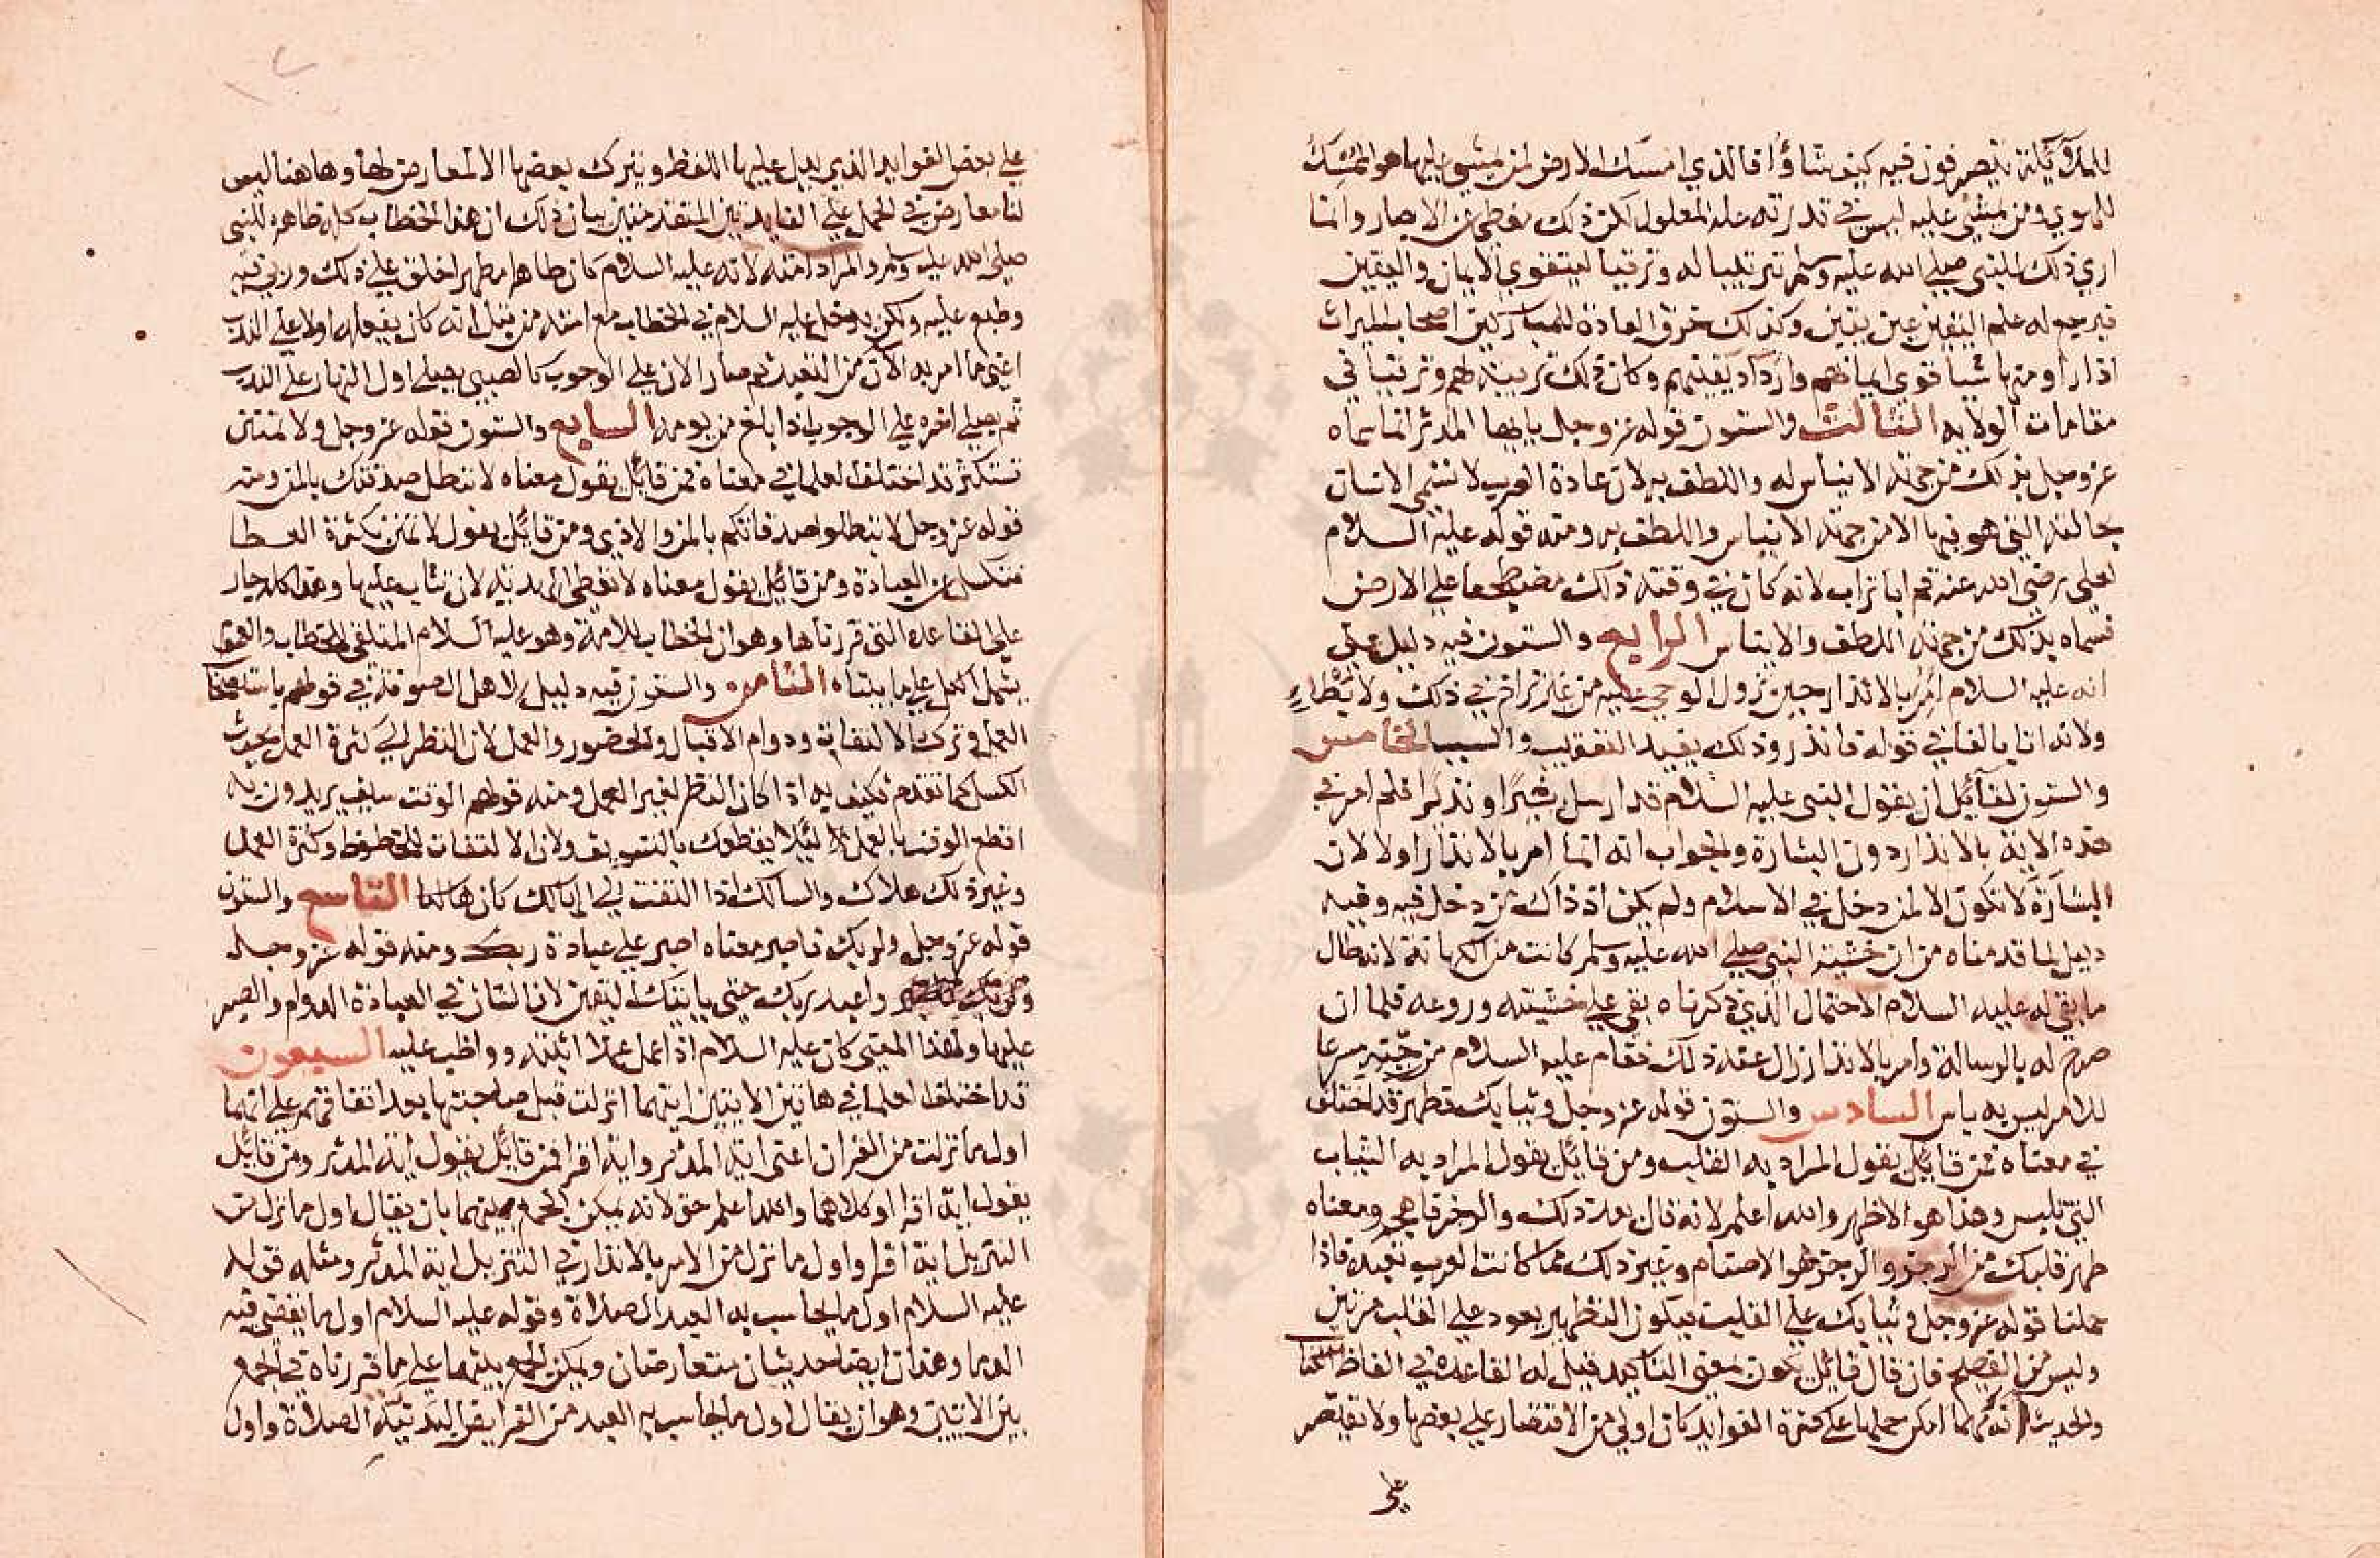 للملائكة يتصرفون فيه كيف شاؤا فالذي امسك الارض لمن يمشي عليها هو الممسك
للهوي ومن يمشي عليه ليس في قدرته علة المعلول لكن ذلك تغطي عن الابصار وانما
اري ذلك النبي صلي الله عليه وسلم تربية له وترقيا ليتقوي الايمان واليقين
فيرجع له علم اليقين عين يقين وكذلك خرق العادة للمباركين اصحاب الميراث
اذا راو منها شيا قوي ايمانهم وازداد يقينهم وكان ذلك تربية لهم وترقيا في
مقامات الولاية الثالث والستون قوله عز وجل يايها المدثر انما سماه
عز وجل بذلك من جهة الايناس له واللطف به لان عادة العرب لا تسمي الانسان
بحالته التي هو فيها الا من جهة الايناس واللطف به ومنه قوله عليه السلام
لعلي رضي الله عنه قم ابا تراب لانه كان في وقته ذلك مضطجعا علي الارض
فسماه بذلك من جهة اللطف والايناس الرابع والستون فيه دليل علي
انه عليه السلام امر بالانذار حين نزول الوحي عليه من غير تراخ في ذلك ولا ابطاء
ولانه اتا بالفا في قوله فانذر وذلك يفيد التعقيب والسبب الخامس
والستون لقائل ان يقول النبي عليه السلام قد ارسل بشيرا ونذيرا فلم امر في
هذه الاية بالانذار دون البشارة والجواب انه انما امر بالانذار اولا لان
البشارة لا تكون الا لمن دخل في الاسلام ولم يكن اذ ذاك من دخل فيه وفيه
دليل لما قدمناه من ان خشية النبي صلي الله عليه وسلم كانت من الكهانة لانه طال
ما بقي له عليه السلام الاحتمال الذي ذكرناه بقي علي خشيته وروعه فلما ان
صرح له بالرسالة وامر بالانذار زال عنه ذلك فقام عليه السلام من حينه مسرعا
للامر ليس به باس السادس والستون قوله عز وجل وثيابك فطهر قد اختلف
في معناه فمن قايل يقول المراد به القلب ومن قايل يقول المراد به الثياب
التي تلبس وهذا هو الاظهر والله اعلم لانه قال بعد ذلك والرجز فاهجر ومعناه
طهر قلبك من الرجز والرجز هو الاصنام وغير ذلك مما كانت العرب تعبده فاذا
حملنا قوله عز وجل وثيابك علي القلب فيكون التطهير يعود علي القلب مرتين
وليس من الفصيح فان قال قائل يكون معني التاكيد قيل له القاعدة في الفاظ
والحديث انه كلما امكن حملها علي كثرة الفوايد كان اولي من الاقتصار علي بعضها ولا نقتصر
علي
علي بعض الفوايد الذي يدل عليها اللفظ ويترك بعضها الا لمعارض لها وهاهنا ليس
لنا معارض في الحمل علي الفايدتين المتقدمتين بيان ذلك ان هذا الخطاب كان ظاهره للنبي
صلي الله عليه وسلم والمراد امته لانه عليه السلام كان طاهرا مطهرا خلق علي ذلك وربي فيه
وطبع عليه ولكن يدخل عليه السلام في الخطاب مع امته من قبل انه كان يفعله اولا علي الندب
اعني ما امر به الان من التعبد ثم صار الان علي الوجوب كالصبي يصلي اول النهار علي الندب
ثم يصلي اخره علي الوجوب اذا بلغ من يومه السابع والستون قوله عز وجل ولا تمنن
تستكثر قد اختلف العلما في معناه فمن قائل يقول معناه لا تبطل صدقتك بالمن ومنه
قوله عز وجل لا تبطلوا صدقاتكم بالمن والاذي ومن قائل يقول لا تمنن بكثرة العطا
فتكسل عن العبادة ومن قائل يقول معناه لا تعطي الهدية لان تثاب عليها وهذا كله جار
علي القاعدة التي قررناها وهو ان الخطاب للامة وهو عليه السلام المتلقي للخطاب واللفظ
يشمل الكل علي ما بيناه الثامن والستون فيه دليل لاهل الصوفة في قولهم باستصحاب
العمل وترك الالتفات ودوام الاقبال والحضور والعمل لان النظر الي كثرة العمل يحدث
الكسل كما تقدم فكيف به اذا كان النظر لغير العمل ومنه قولهم الوقت سيف يريدون به
اقطع الوقت بالعمل لئلا يقطعك بالتسويف ولان الالتفات للحظوظ وكثرة العمل
وغير ذلك هلاك والسالك اذا التفت الي الهالك كان هالكا التاسع والستون
قوله عز وجل ولربك فاصبر معناه اصبر علي عبادة ربك ومنه قوله عز وجل
واعبد ربك حتي ياتيك اليقين لان الشان في العبادة الدوام والصبر
عليها ولهذا المعني كان عليه السلام اذا عمل عملا اثبته وواظب عليه السبعون
قد اختلف العلما في هاتين الايتين ايتهما انزلت قبل صاحبتها بعد اتفاقهم علي انهما
اول ما نزلت من القران اعني اية المدثر واية اقرا فمن قائل يقول اية المدثر ومن قائل
يقول اية اقرا وكلاهما والله اعلم حق لانه يمكن الجمع بينهما بان يقال اول ما نزل من
التنزيل اية اقرا واول ما نزل من الامر بالانذار في التنزيل اية المدثر ومثله قوله
عليه السلام اول ما يحاسب به العبد الصلاة وقوله عليه السلام اول ما يقضي فيه
الدما وهذان ايضا حديثان متعارضان ويمكن الجمع بينهما علي ما قررناه في الجمع
بين الايتين وهو ان يقال اول ما يحاسب به العبد من الفرايض البدنية الصلاة واول